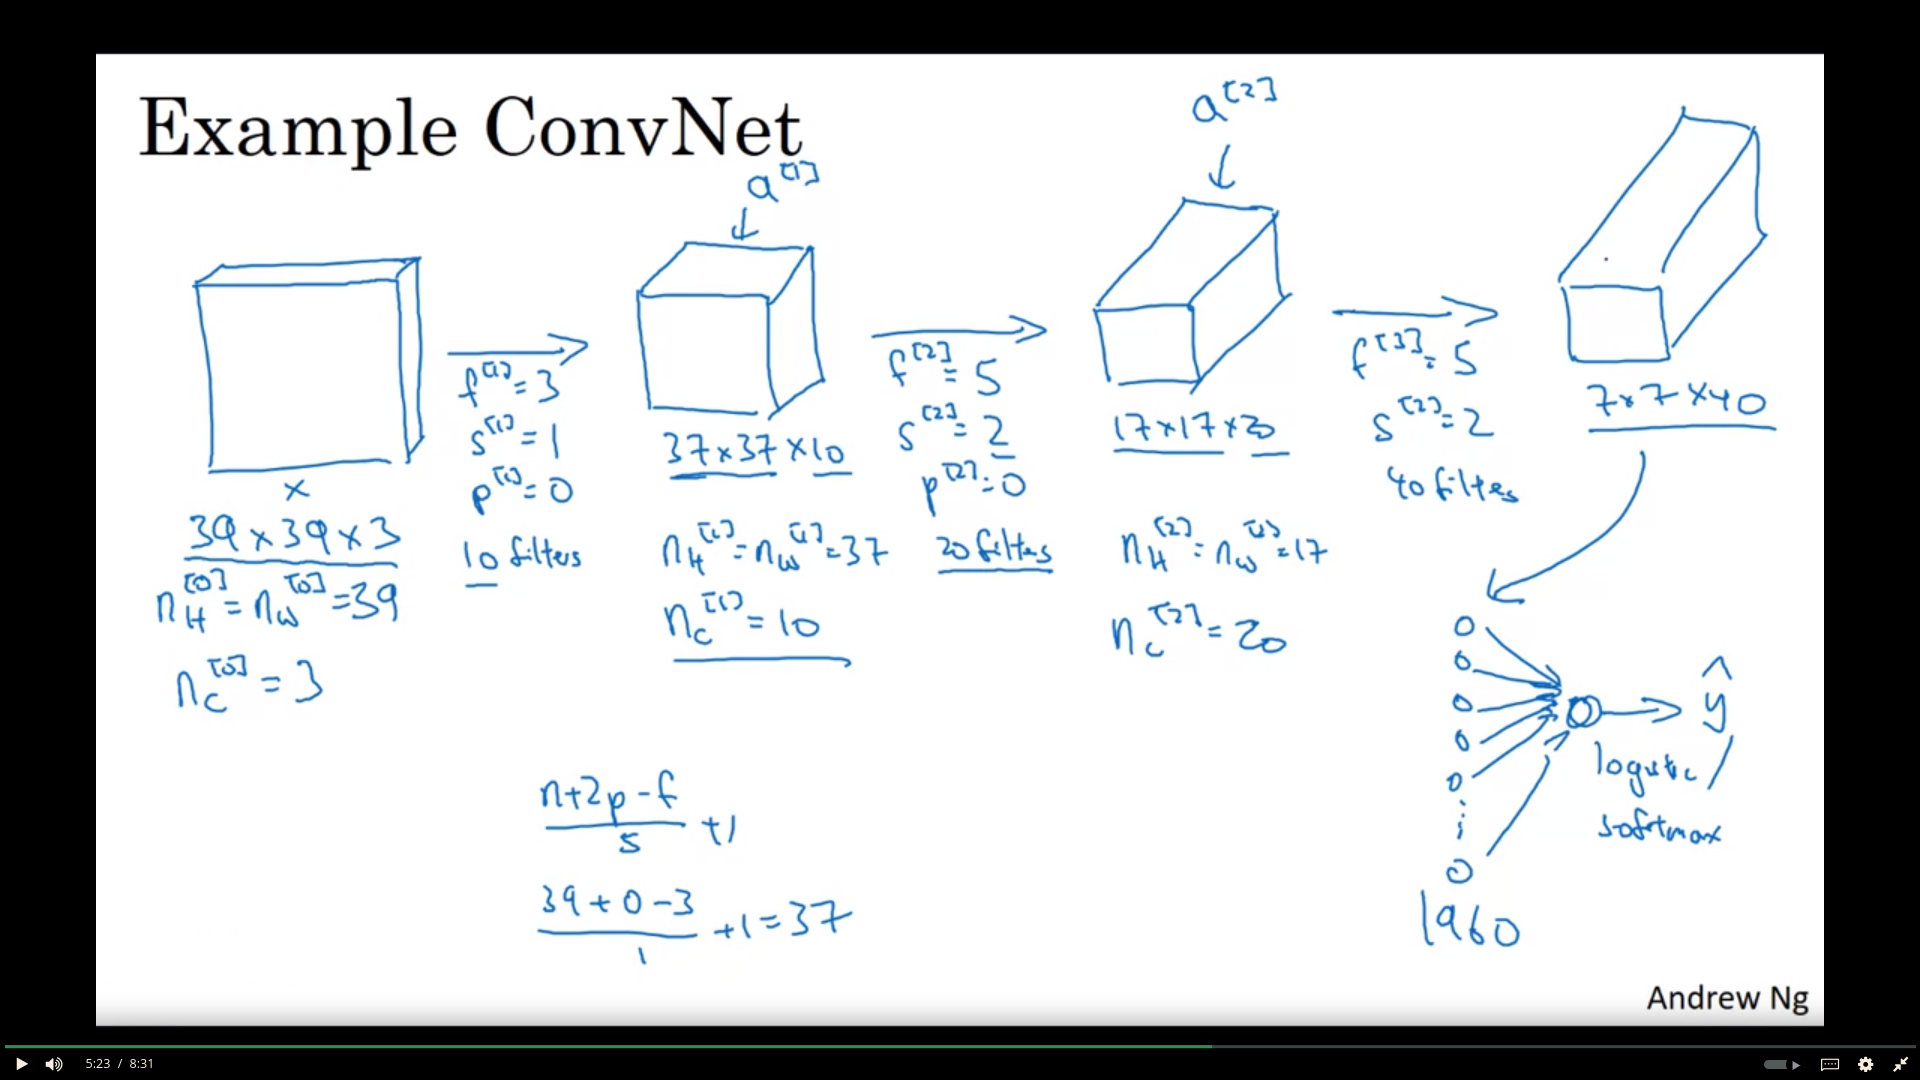 Example ConvNet
a[1]
a[2]
x
39 x 39 x 3
nH[0] = nW[0] = 39
nC[0] = 3
f[1] = 3
s[1] = 1
p[1] = 0
10 filters
37 x 37 x 10
nH[1] = nW[1] = 37
nC[1] = 10
f[2] = 5
s[2] = 2
p[2] = 0
20 filters
17 x 17 x 20
nH[2] = nW[2] = 17
nC[2] = 20
f[3] = 5
s[2] = 2
40 filters
7 x 7 x 40
ŷ
logistic /
softmax
1960
n+2p-f
s
+1
39 + 0 - 3
1
+1 = 37
Andrew Ng
5:23 / 8:31